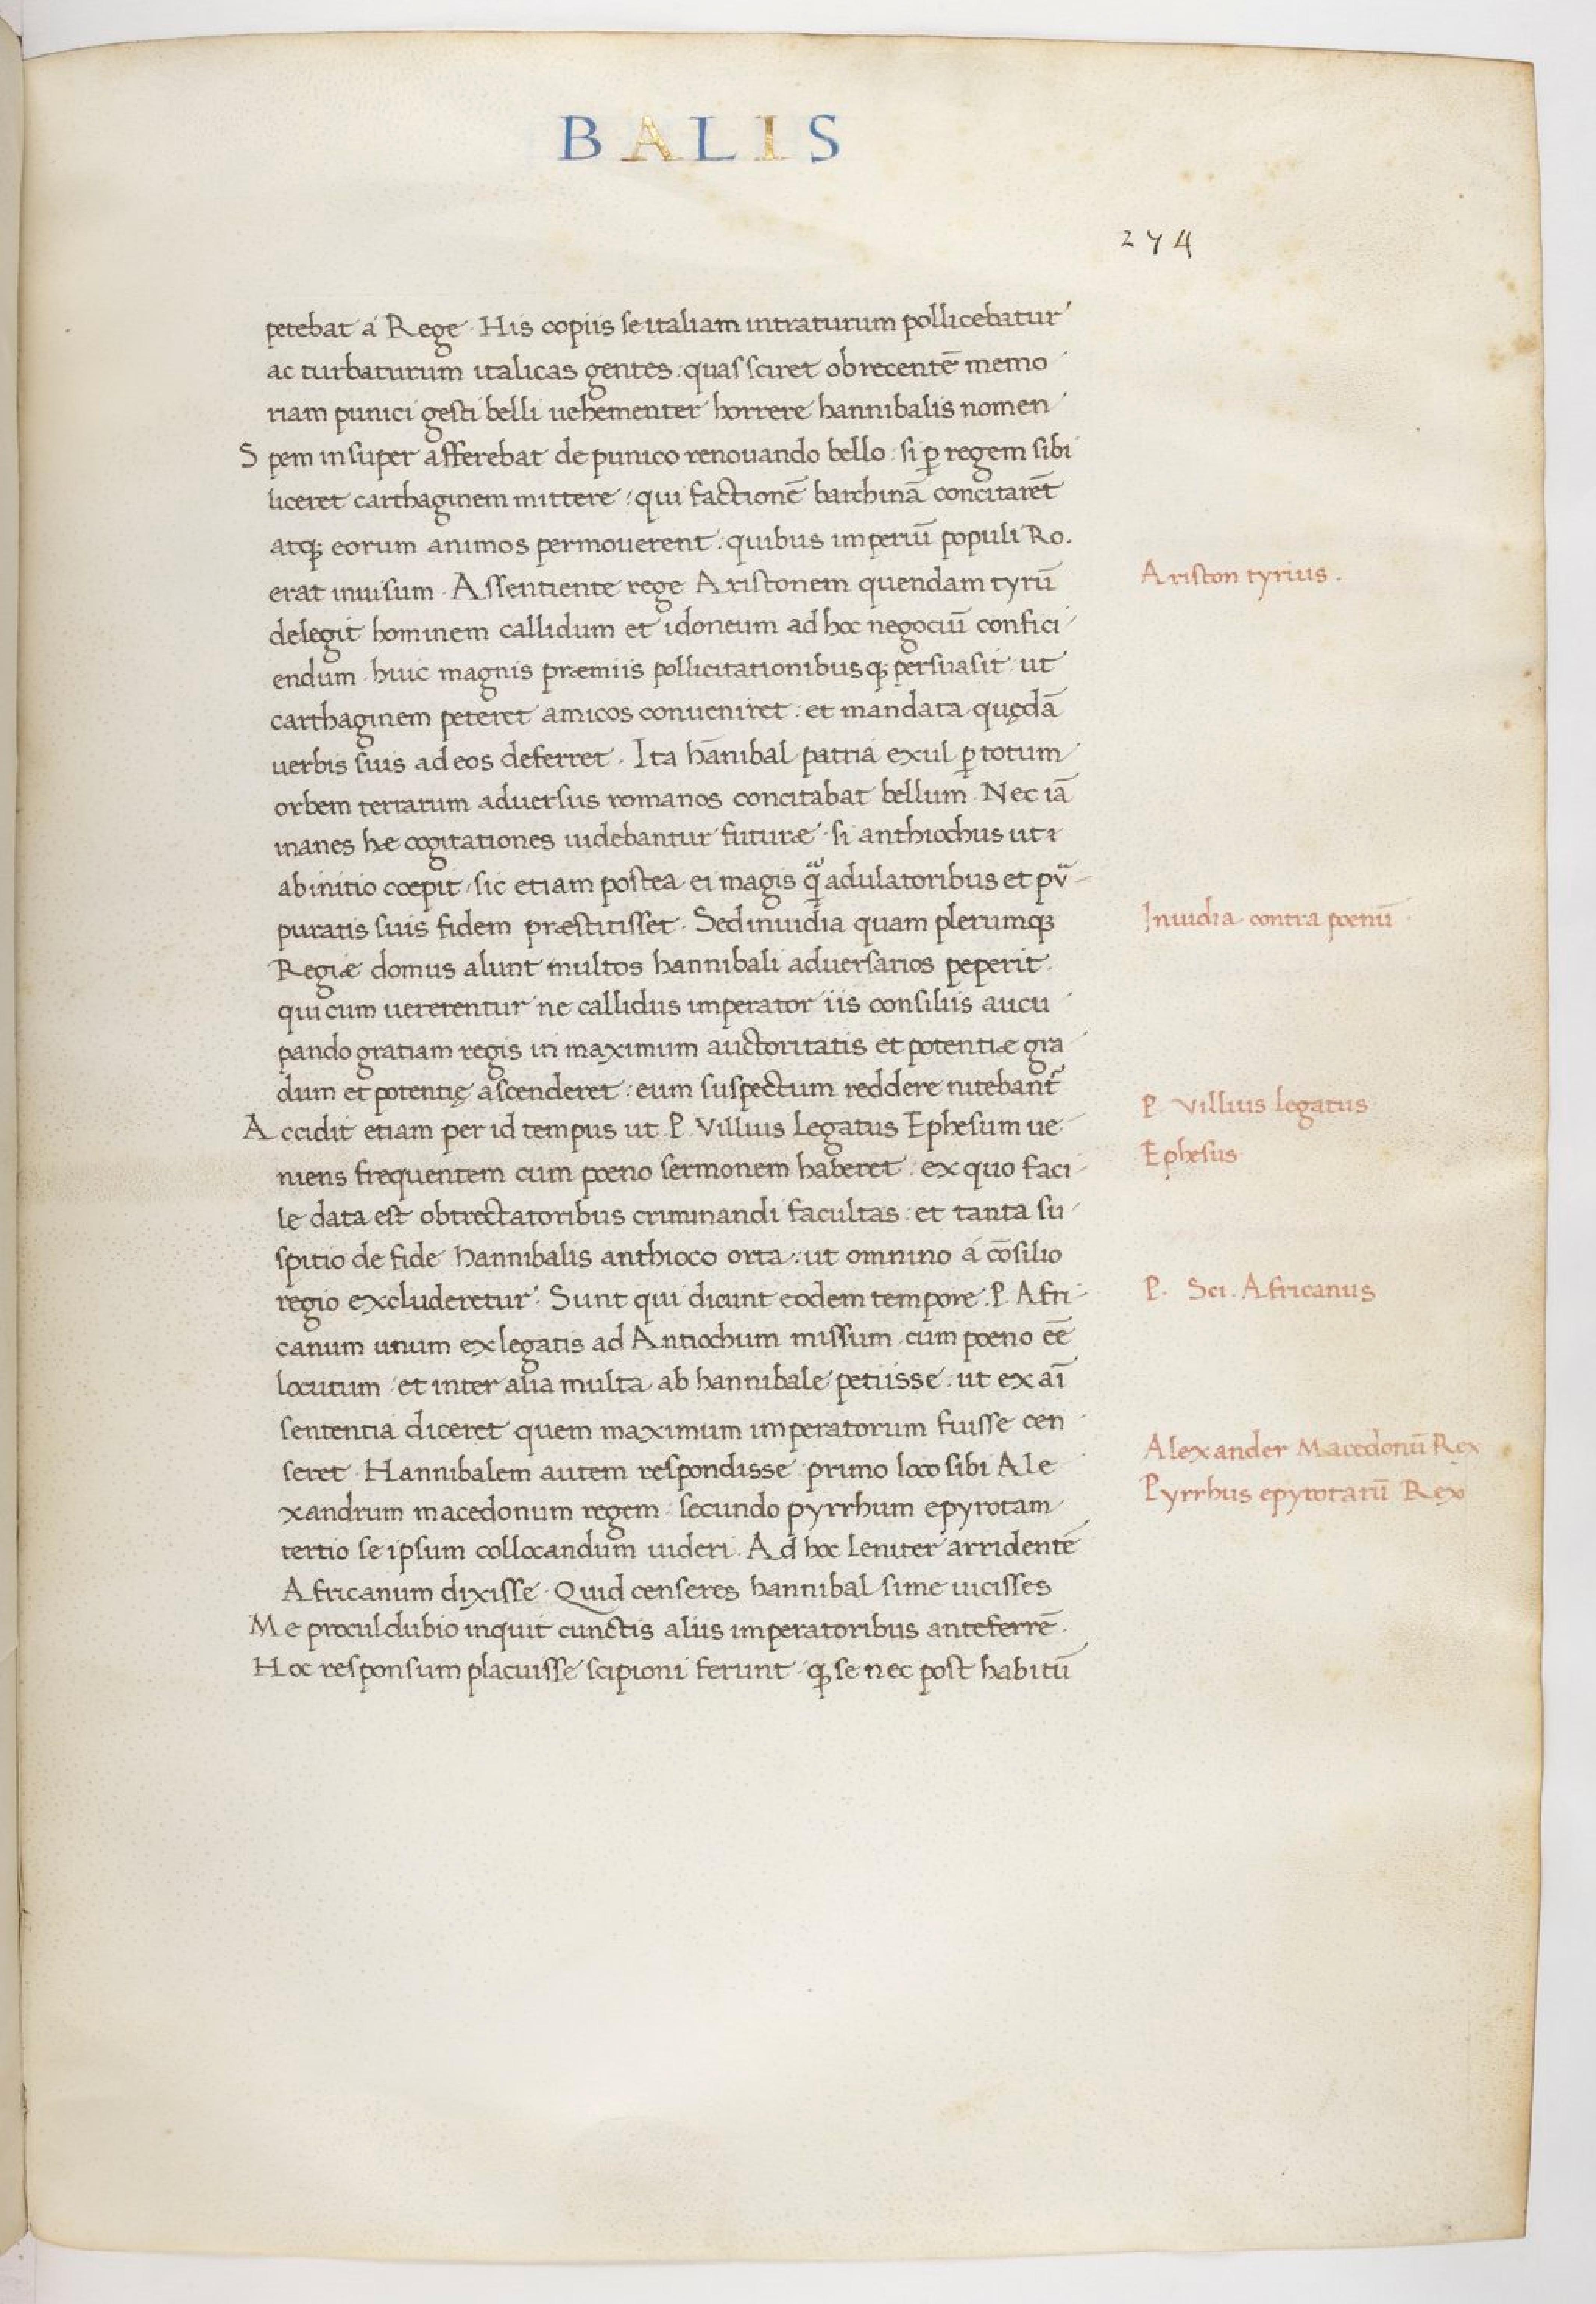 BALIS
274
petebat a Rege · His copiis se italiam intraturum pollicebatur
ac turbaturum italicas gentes : quas sciret ob recentē memo
riam punici gesti belli uehementer horrere hannibalis nomen
Spem insuper afferebat de punico renouando bello : si ꝑ regem sibi
liceret carthaginem mittere : qui factionē barchinā concitarēt
atq; eorum animos permouerent : quibus imperiū populi Ro.
erat inuisum · Assentiente rege Aristonem quendam tyriū
Ariston tyrius .
delegit hominem callidum et idoneum ad hoc negociū confici
endum · huic magnis præmiis pollicitationibusq; persuasit ut
carthaginem peteret amicos conueniret : et mandata quędā
uerbis suis ad eos deferret · Ita hānibal patria exul ꝑ totum
orbem terrarum aduersus romanos concitabat bellum · Nec iā
inanes hæ cogitationes uidebantur futuræ · si anthiochus uti
ab initio coepit · sic etiam postea ei magis qᷓ adulatoribus et pu᷑
puratis suis fidem præstitisset · Sed inuidia quam plerumq;
Inuidia contra poenū
Regiæ domus alunt multos hannibali aduersarios peperit ·
qui cum uererentur ne callidus imperator iis consiliis aucu
pando gratiam regis in maximum auctoritatis et potentiæ gra
dum et potentię ascenderet : eum suspectum reddere nitebant᷑
Accidit etiam per id tempus ut P. Villius Legatus Ephesum ue
P. Villius legatus
niens frequentem cum poeno sermonem haberet : ex quo faci
Ephesus
le data est obtrectatoribus criminandi facultas : et tanta su
spitio de fide hannibalis anthioco orta : ut omnino a cōsilio
regio excluderetur · Sunt qui dicunt eodem tempore P. Afri
P. Sci. Africanus
canum unum ex legatis ad Antiochum missum cum poeno eē
locutum et inter alia multa ab hannibale petiisse : ut ex aī
sententia diceret quem maximum imperatorum fuisse cen
seret · Hannibalem autem respondisse primo loco sibi Ale
Alexander Macedonū Rex
xandrum macedonum regem : secundo pyrrhum epyrotam
Pyrrhus epyrotarū Rex
tertio se ipsum collocandum uideri · Ad hoc leniter arridentē
Africanum dixisse · Quid censeres hannibal si me uicisses
Me procul dubio inquit cunctis aliis imperatoribus anteferrē ·
Hoc responsum placuisse scipioni ferunt · ꝙ se nec post habitū